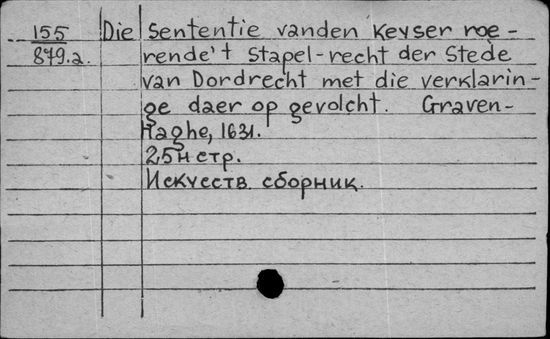 155 Die Sententie vanden Keyser roe-
879.a. rende't Stapel-recht der Stede
van Dordrecht met die verklarin-
ge daer op gevolcht. Graven-
Haghe, 1631.
25 н стр.
Искусств. сборник.